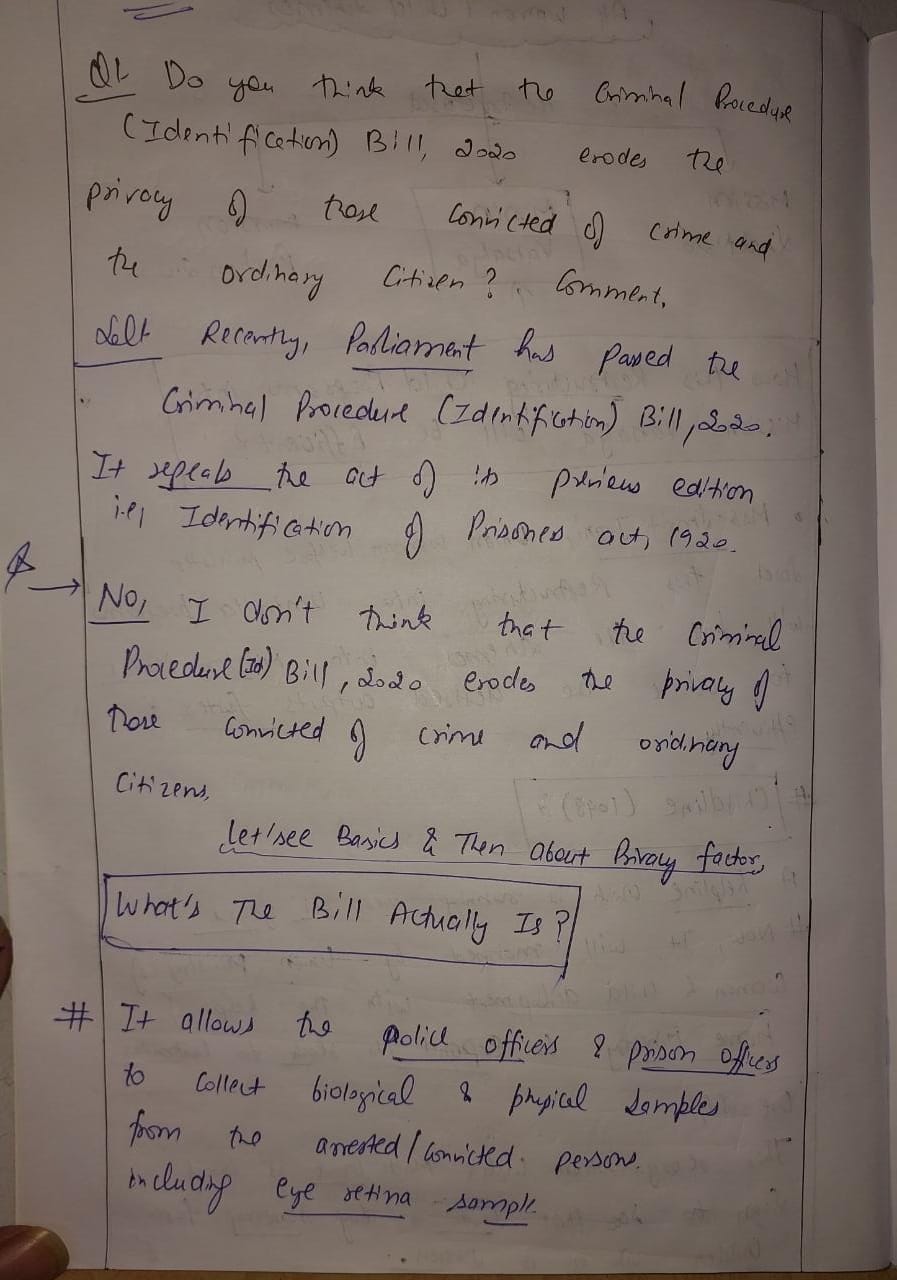 Q1. Do you think that the Criminal Procedure
(Identification) Bill, 2020 erodes the
privacy of those convicted of crime and
the ordinary Citizen? Comment.
Recently, Parliament has passed the
Criminal Procedure (Identification) Bill, 2020.
It repeals the act of its previous edition
i.e, Identification of Prisoners act, 1920.
No, I don't think that the Criminal
Procedure (Id) Bill, 2020 erodes the privacy of
those convicted of crime and ordinary
Citizens,
let'see Basics & Then About Privacy factor,
What's The Bill Actually Is?
# It allows the police officers & prison officers
to collect biological & physical samples
from the arrested/convicted persons.
including eye retina sample.